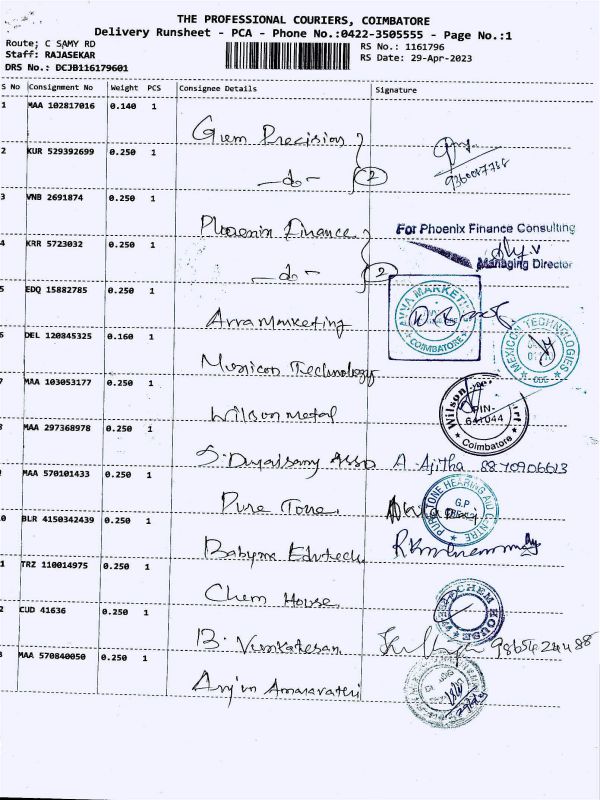 THE PROFESSIONAL COURIERS, COIMBATORE
Delivery Runsheet - PCA - Phone No.:0422-3505555 - Page No.:1
Route; C SAMY RD
Staff: RAJASEKAR
DRS No.: DCJB116179601
RS No.: 1161796
RS Date: 29-Apr-2023
S No Consignment No Weight PCS Consignee Details Signature
1 MAA 102817016 0.140 1
Gem Precision
2 KUR 529392699 0.250 1
-do- 2
3 VNB 2691874 0.250 1
Phoenix Finance
For Phoenix Finance Consulting
4 KRR 5723032 0.250 1
Managing Director
-do- 2
5 EDQ 15882785 0.250 1
AVVA MARKETING
COIMBATORE
Avva Marketing
6 DEL 120845325 0.160 1
MEXICON TECHNOLOGIES
Mexicon Technology
7 MAA 103053177 0.250 1
Wilson
PIN-
641044
Coimbatore
Wilson metal
MAA 297368978 0.250 1
S. Duraisamy Asso A. Ajitha 8870906613
MAA 570101433 0.250 1
PURETONE HEARING AID CENTRE
G.P
Pure Tone
0 BLR 4150342439 0.250 1
1 TRZ 110014975 0.250 1
CHEM HOUSE
Chem House
2 CUD 41636 0.250 1
B. Venkatesan
3 MAA 570840050 0.250 1
Arjun Amaravathi